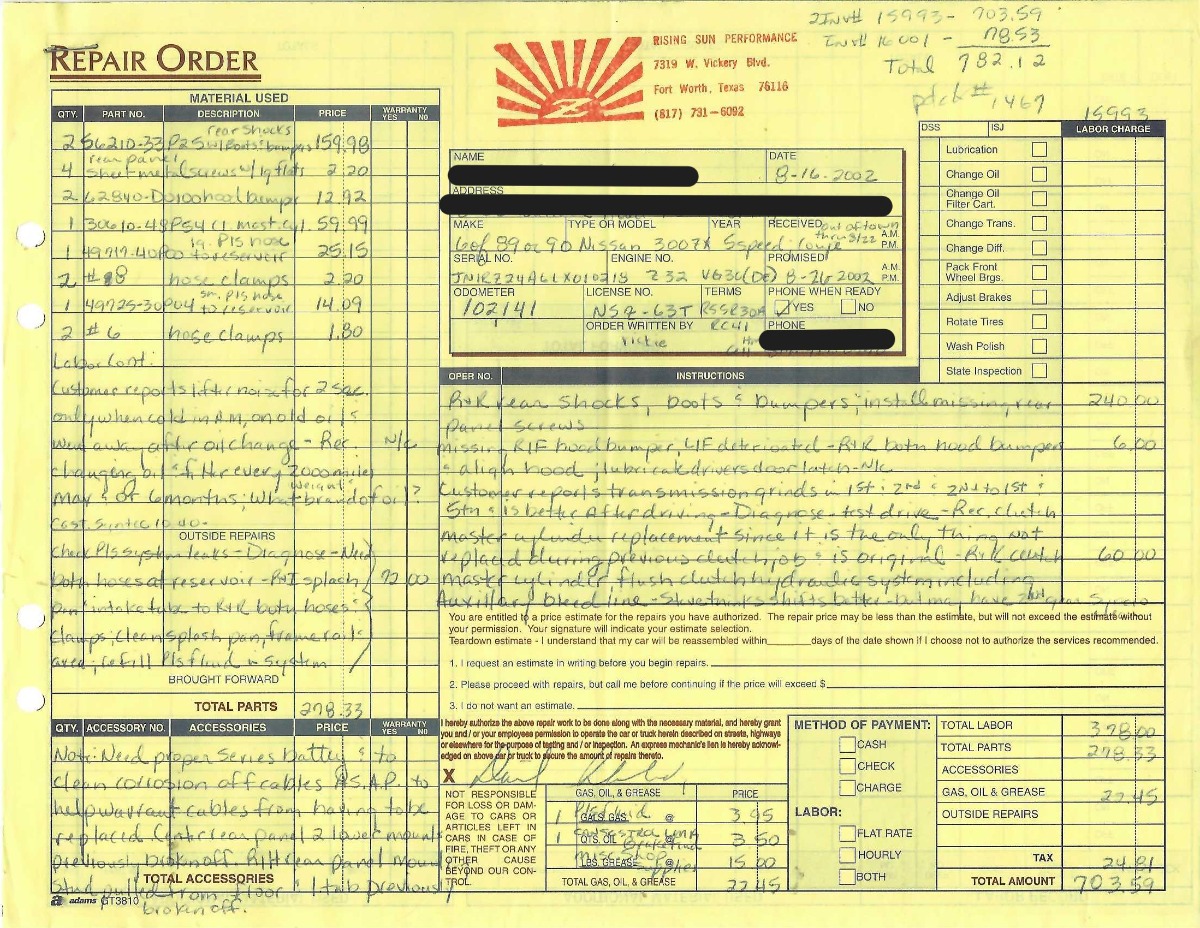 2 Inv# 15993- 703.59
Inv# 16001 - 78.53
Total 782.12
pd ck # 1467
REPAIR ORDER
RISING SUN PERFORMANCE
7319 W. Vickery Blvd.
Fort Worth, Texas 76116
(817) 731-6092
15993
MATERIAL USED
QTY. PART NO. DESCRIPTION PRICE WARRANTY YES NO
rear shocks
2 56210-33P25 w/boots & bumpers 159.98
rear panel
4 Sheet metal screws w/ 2.20
2 62840-D0100 hood bumper 12.92
1 30610-48P54 cl mast cyl 59.99
lg. P/S hose
1 49717-40P00 to reservoir 25.15
2 #18 hose clamps 2.20
sm. P/S hose
1 49725-30P04 to reservoir 14.09
2 #6 hose clamps 1.80
Labor Cont:
Customer reports lifter noise for 2 sec.
only when cold in A.M, on old oil &
went away after oil change - Rec. N/C
changing oil & filter every 2000 miles
weight &
max & or 6 months; What brand of oil?
10-40-
OUTSIDE REPAIRS
Check P/S system leaks - Diagnose - Need
both hoses at reservoir - R+I splash 72.00
pan & intake tube to R+R both hoses &
clamps; clean splash pan, frame rail &
area; refill P/S fluid in system
BROUGHT FORWARD
TOTAL PARTS 278.33
QTY. ACCESSORY NO. ACCESSORIES PRICE WARRANTY YES NO
Note: Need proper series battery & to
clean corrosion off cables A.S.A.P. to
help warrant cables from having to be
replaced. Center rear panel 2 lower mounts
previously broken off. R/H rear panel mount
TOTAL ACCESSORIES
stud pulled from floor & 1 tab previously
broken off.
adams GT3810
NAME
DATE 8-16-2002
ADDRESS
MAKE TYPE OR MODEL YEAR RECEIVED out of town thru 8/22 A.M. P.M.
6 of 89 or 90 Nissan 300ZX 5 speed coupe
SERIAL NO. ENGINE NO. PROMISED A.M. P.M.
JN1RZ24A6LX010218 Z32 VG30(DE) 8-26-2002
ODOMETER LICENSE NO. TERMS PHONE WHEN READY
102141 NS9-63T YES NO
ORDER WRITTEN BY RC41 PHONE
Vickie
DSS ISJ LABOR CHARGE
Lubrication
Change Oil
Change Oil Filter Cart.
Change Trans.
Change Diff.
Pack Front Wheel Brgs.
Adjust Brakes
Rotate Tires
Wash Polish
State Inspection
OPER NO. INSTRUCTIONS
R+R rear shocks, boots & bumpers; install missing rear 240.00
panel screws
missing R/F hood bumper, L/F deteriorated - R+R both hood bumpers 6.00
& align hood; lubricate drivers door latch - N/C
Customer reports transmission grinds in 1st & 2nd & 2nd to 1st &
5th & is better after driving - Diagnose - test drive - Rec. clutch
master cylinder replacement since it is the only thing not
replaced during previous clutch job & is original - R+R clutch 60.00
master cylinder flush clutch hydraulic system including
Auxillary bleed line - Steve thinks shifts better - but may have 2nd gear Syncro
You are entitled to a price estimate for the repairs you have authorized. The repair price may be less than the estimate, but will not exceed the estimate without
your permission. Your signature will indicate your estimate selection.
Teardown estimate - I understand that my car will be reassembled within____days of the date shown if I choose not to authorize the services recommended.
1. I request an estimate in writing before you begin repairs.
2. Please proceed with repairs, but call me before continuing if the price will exceed $
3. I do not want an estimate.
I hereby authorize the above repair work to be done along with the necessary material, and hereby grant
you and / or your employees permission to operate the car or truck herein described on streets, highways
or elsewhere for the purpose of testing and / or inspection. An express mechanic's lien is hereby acknowl-
edged on above car or truck to secure the amount of repairs thereto.
X
NOT RESPONSIBLE
FOR LOSS OR DAM-
AGE TO CARS OR
ARTICLES LEFT IN
CARS IN CASE OF
FIRE, THEFT OR ANY
OTHER CAUSE
BEYOND OUR CON-
TROL.
GAS, OIL, & GREASE PRICE
1 P/S fluid GALS. GAS @ 3.95
1 Castrol LMA Brake fluid QTS. OIL @ 3.50
Misc shop supplies LBS. GREASE @ 15.00
TOTAL GAS, OIL, & GREASE 22.45
METHOD OF PAYMENT:
CASH
CHECK
CHARGE
LABOR:
FLAT RATE
HOURLY
BOTH
TOTAL LABOR 378.00
TOTAL PARTS 278.33
ACCESSORIES
GAS, OIL & GREASE 22.45
OUTSIDE REPAIRS
TAX 24.81
TOTAL AMOUNT 703.59